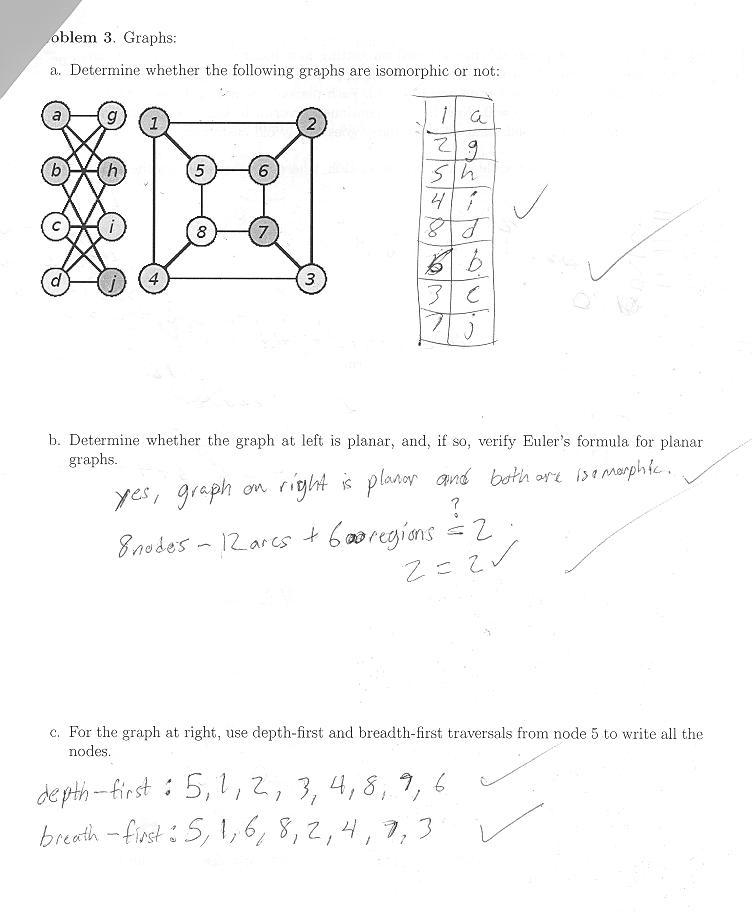 oblem 3. Graphs:
a. Determine whether the following graphs are isomorphic or not:
a g 1 2
b h 5 6
c i 8 7
d j 4 3
1 a
2 g
5 h
4 i
8 d
6 b
3 c
7 j
b. Determine whether the graph at left is planar, and, if so, verify Euler's formula for planar
graphs.
yes, graph on right is planar and both are isomorphic.
?
8 nodes - 12 arcs + 6 regions = 2
2 = 2 ✓
c. For the graph at right, use depth-first and breadth-first traversals from node 5 to write all the
nodes.
depth-first : 5, 1, 2, 3, 4, 8, 7, 6
breath-first : 5, 1, 6, 8, 2, 4, 7, 3